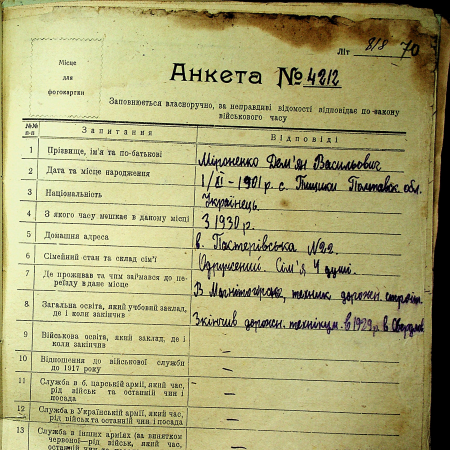 Літ 8/8 70
Місце
для
фотокартки
Анкета № 4212
Заповнюється власноручно, за неправдиві відомості відповідає по закону
військового часу
№№
п-п
Запитання
Відповіді
1 Прізвище, ім'я та по-батькові Міроненко Дем'ян Васильович
2 Дата та місце народження 1/XI - 1901 р. с. Полтавск. обл.
3 Національність Українець
4 З якого часу мешкає в даному місці З 1930 р.
5 Домашня адреса в. Пастерівська №22
6 Сімейний стан та склад сім'ї Одружений. Сім'я 4 душі.
7 Де проживав та чим займався до переїзду в дане місце В Магнітогорск, технік дорожн. строит.
8 Загальна освіта, який учбовий заклад,
де і коли закінчив Закінчив дорожн. технікум в 1929 р. в
9 Військова освіта, який заклад, де і
коли закінчив —
10 Відношення до військової служби
до 1917 року —
11 Служба в б. царській армії, який час,
рід військ та останній чин і
посада —
12 Служба в Українській армії, який час,
рід війьск та останній чин і посада —
13 Служба в інших арміях (за винятком
червоної—рід військ, який час,